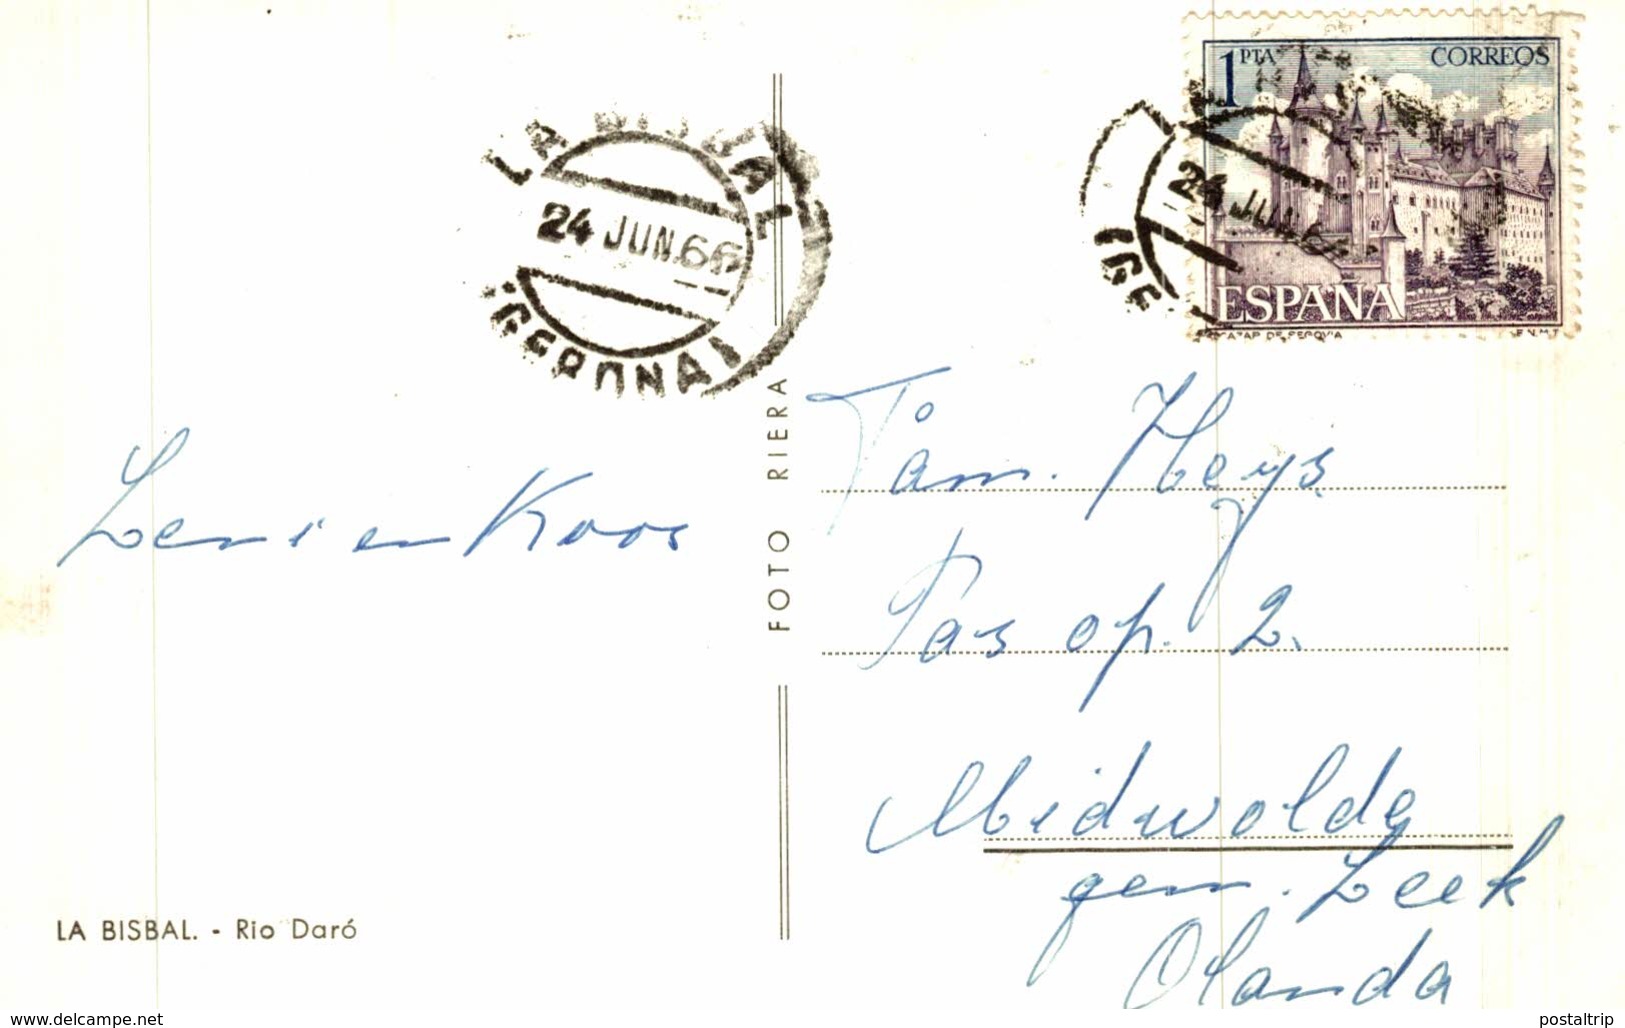 1 PTA CORREOS
ESPAÑA
ALCAZAR DE SEGOVIA F.N.M.T.
LA BISBAL
24 JUN.66
(GERONA)
24 JUN.66
(GE
Leni en Koos
FOTO RIERA
Fam. Heys
Pas op. 2.
Midwolde
gem. Leek
Olanda
LA BISBAL. - Rio Daró
www.delcampe.net
postaltrip